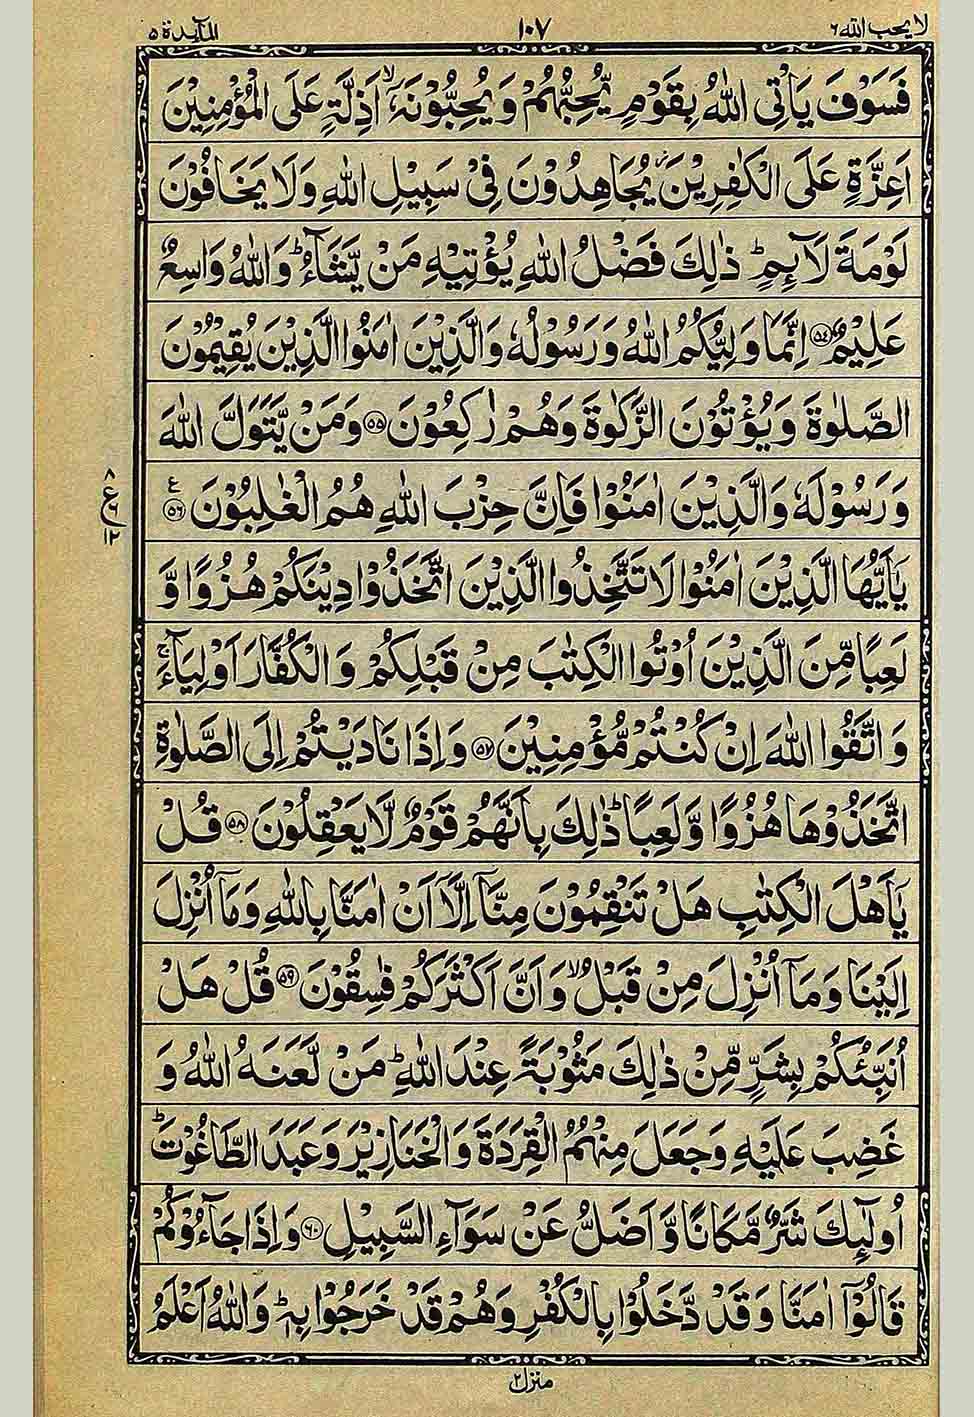 المآيدة ٥ ١٠٧ لا يحب الله ٦
فَسَوْفَ يَاْتِى اللّٰهُ بِقَوْمٍ يُّحِبُّهُمْ وَ يُحِبُّوْنَهٗۤ ۙ اَذِلَّةٍ عَلَى الْمُؤْمِنِيْنَ
اَعِزَّةٍ عَلَى الْكٰفِرِيْنَ ؗ يُجَاهِدُوْنَ فِىْ سَبِيْلِ اللّٰهِ وَلَا يَخَافُوْنَ
لَوْمَةَ لَآئِمٍ ؕ ذٰلِكَ فَضْلُ اللّٰهِ يُؤْتِيْهِ مَنْ يَّشَآءُ ؕ وَاللّٰهُ وَاسِعٌ
عَلِيْمٌ ۝٥٤ اِنَّمَا وَلِيُّكُمُ اللّٰهُ وَرَسُوْلُهٗ وَالَّذِيْنَ اٰمَنُوا الَّذِيْنَ يُقِيْمُوْنَ
الصَّلٰوةَ وَيُؤْتُوْنَ الزَّكٰوةَ وَهُمْ رٰكِعُوْنَ ۝٥٥ وَمَنْ يَّتَوَلَّ اللّٰهَ
وَرَسُوْلَهٗ وَالَّذِيْنَ اٰمَنُوْا فَاِنَّ حِزْبَ اللّٰهِ هُمُ الْغٰلِبُوْنَ ۝٥٦ ع
٨ ع ٦ ١٢
يٰۤاَيُّهَا الَّذِيْنَ اٰمَنُوْا لَا تَتَّخِذُوا الَّذِيْنَ اتَّخَذُوْا دِيْنَكُمْ هُزُوًا وَّ
لَعِبًا مِّنَ الَّذِيْنَ اُوْتُوا الْكِتٰبَ مِنْ قَبْلِكُمْ وَالْكُفَّارَ اَوْلِيَآءَ ۚ
وَاتَّقُوا اللّٰهَ اِنْ كُنْتُمْ مُّؤْمِنِيْنَ ۝٥٧ وَاِذَا نَادَيْتُمْ اِلَى الصَّلٰوةِ
اتَّخَذُوْهَا هُزُوًا وَّلَعِبًا ؕ ذٰلِكَ بِاَنَّهُمْ قَوْمٌ لَّا يَعْقِلُوْنَ ۝٥٨ قُلْ
يٰۤاَهْلَ الْكِتٰبِ هَلْ تَنْقِمُوْنَ مِنَّاۤ اِلَّاۤ اَنْ اٰمَنَّا بِاللّٰهِ وَمَاۤ اُنْزِلَ
اِلَيْنَا وَمَاۤ اُنْزِلَ مِنْ قَبْلُ ۙ وَاَنَّ اَكْثَرَكُمْ فٰسِقُوْنَ ۝٥٩ قُلْ هَلْ
اُنَبِّئُكُمْ بِشَرٍّ مِّنْ ذٰلِكَ مَثُوْبَةً عِنْدَ اللّٰهِ ؕ مَنْ لَّعَنَهُ اللّٰهُ وَ
غَضِبَ عَلَيْهِ وَجَعَلَ مِنْهُمُ الْقِرَدَةَ وَالْخَنَازِيْرَ وَعَبَدَ الطَّاغُوْتَ ؕ
اُولٰٓئِكَ شَرٌّ مَّكَانًا وَّاَضَلُّ عَنْ سَوَآءِ السَّبِيْلِ ۝٦٠ وَاِذَا جَآءُوْكُمْ
قَالُوْۤا اٰمَنَّا وَقَدْ دَّخَلُوْا بِالْكُفْرِ وَهُمْ قَدْ خَرَجُوْا بِهٖ ؕ وَاللّٰهُ اَعْلَمُ
منزل ٢